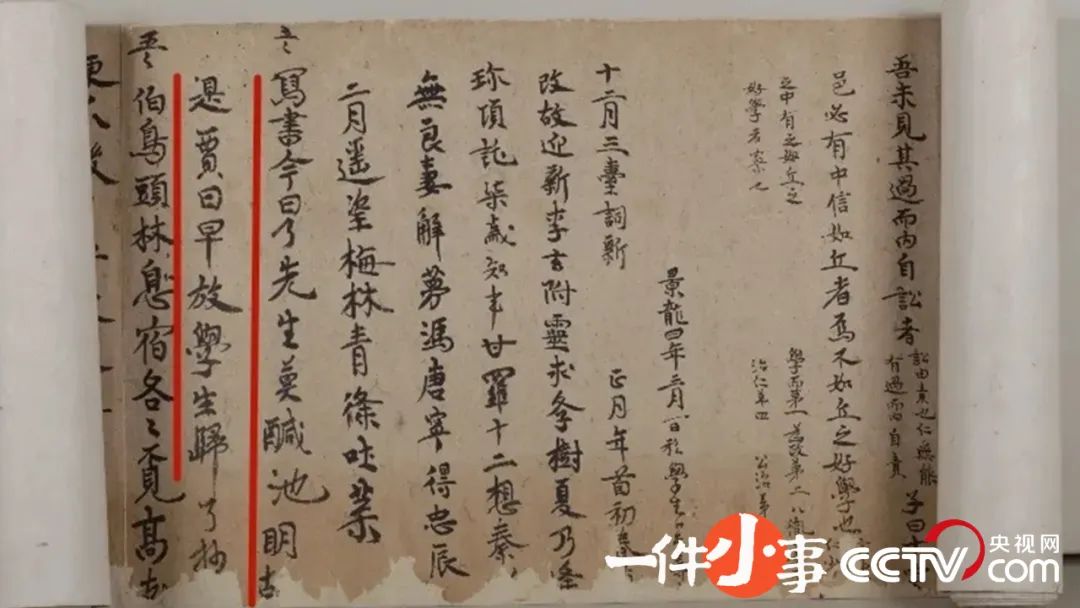 吾未見其過而內自訟者
訟由責也仁無能
有過而自責
子曰十
邑必有中信如丘者焉不如丘之好學也
之中有忠如丘之
好學者寡也
學而第一 為政第二 八佾
仁第四 公冶第
景龍四年三月一日私學生
十二月三臺詞新 正月年首初春
改故迎新李玄附靈求學樹夏乃逢
珎項託柒歲知事甘羅十二想秦
無良妻解夢馮唐寧得忠辰
二月遥望梅林青條吐葉
寫書今日了先生莫醎池明
是賈日早放學生歸
伯鳥頭林息宿各々覓高
一件小事
CCTV
央视网
com